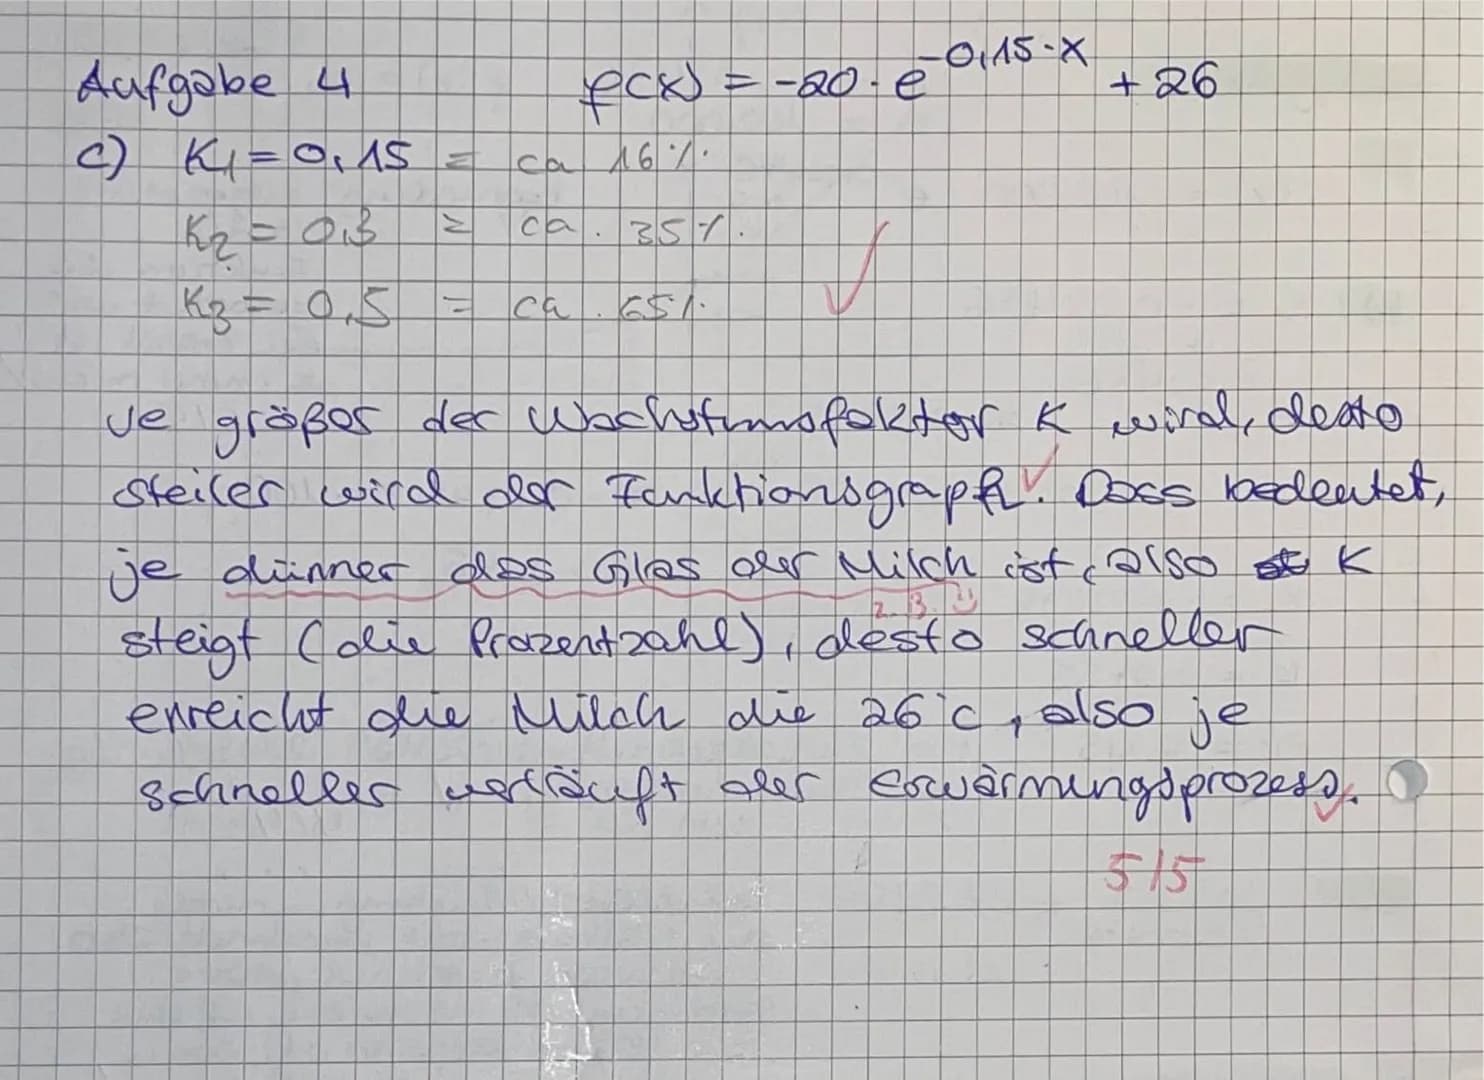 Aufgabe 4 f(x) = -20 · e^-0,15·x + 26
c) K1 = 0,15 = ca 16%.
K2 = 0,3 = ca. 35%.
K3 = 0,5 = ca. 65%.
Je größer der Wachstumsfaktor K wird, desto
steiler wird der Funktionsgraph. Dass bedeutet,
je dünner das Glas der Milch ist, also K
z.B.
steigt (die Prozentzahl), desto schneller
erreicht die Milch die 26°C, also je
schneller verläuft der Erwärmungsprozess.
5/5